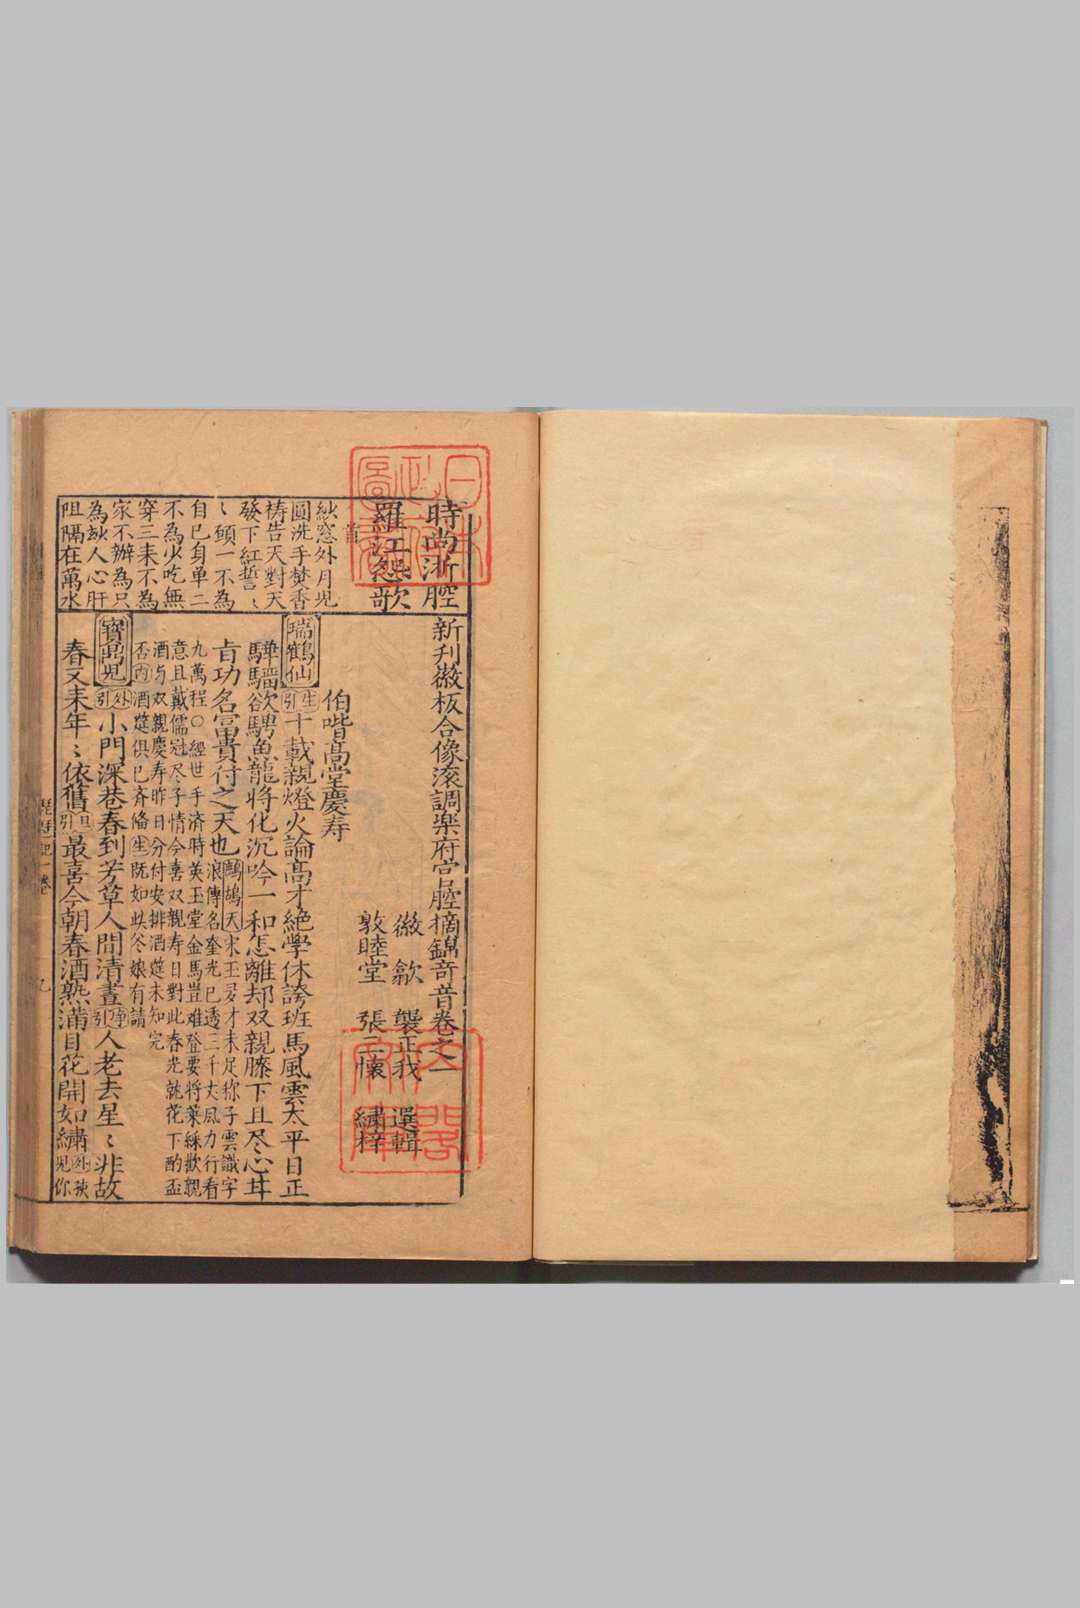 時尚浙腔
羅江怨歌
首
紗窓外月児
圓洗手焚香
祷告天對天
發下紅誓〻
〻頭一不為
自已身单二
不為少吃無
穿三耒不為
家不辦為只
為玅人心肝
阻隔在萬水
新刋徽板合像滚調楽府官腔摘錦竒音卷之一
徽歙 龔正我 選輯
敦睦堂 張三懷 繡梓
伯喈髙堂慶寿
瑞鶴仙 生引 十載親燈火論髙才絶學休誇班馬風雲太平日正
驊騮欲騁魚龍将化沉吟一和怎離却双親膝下且尽心甘
㫖功名富貴付之天也 鷓鴣天 宋玉多才未足称子雲識字
浪傳名奎光已透三千丈風力行看
九萬程〇經世手済時英玉堂金馬豈难登要将莱綵歡親
意且戴儒冠尽子情今喜双親寿日對此春光就花下酌盃
酒与双親慶寿昨日分付安排酒筵未知完
否内酒筵俱已齐俻生既如此冬娘有請
寳鼎児 外引 小門深巷春到芳草人間清晝 净引 人老去星〻非故
春又耒年〻依舊 旦引 最喜今朝春酒熟满目花開如繡 外 孩児你
琵琶記 一卷
九